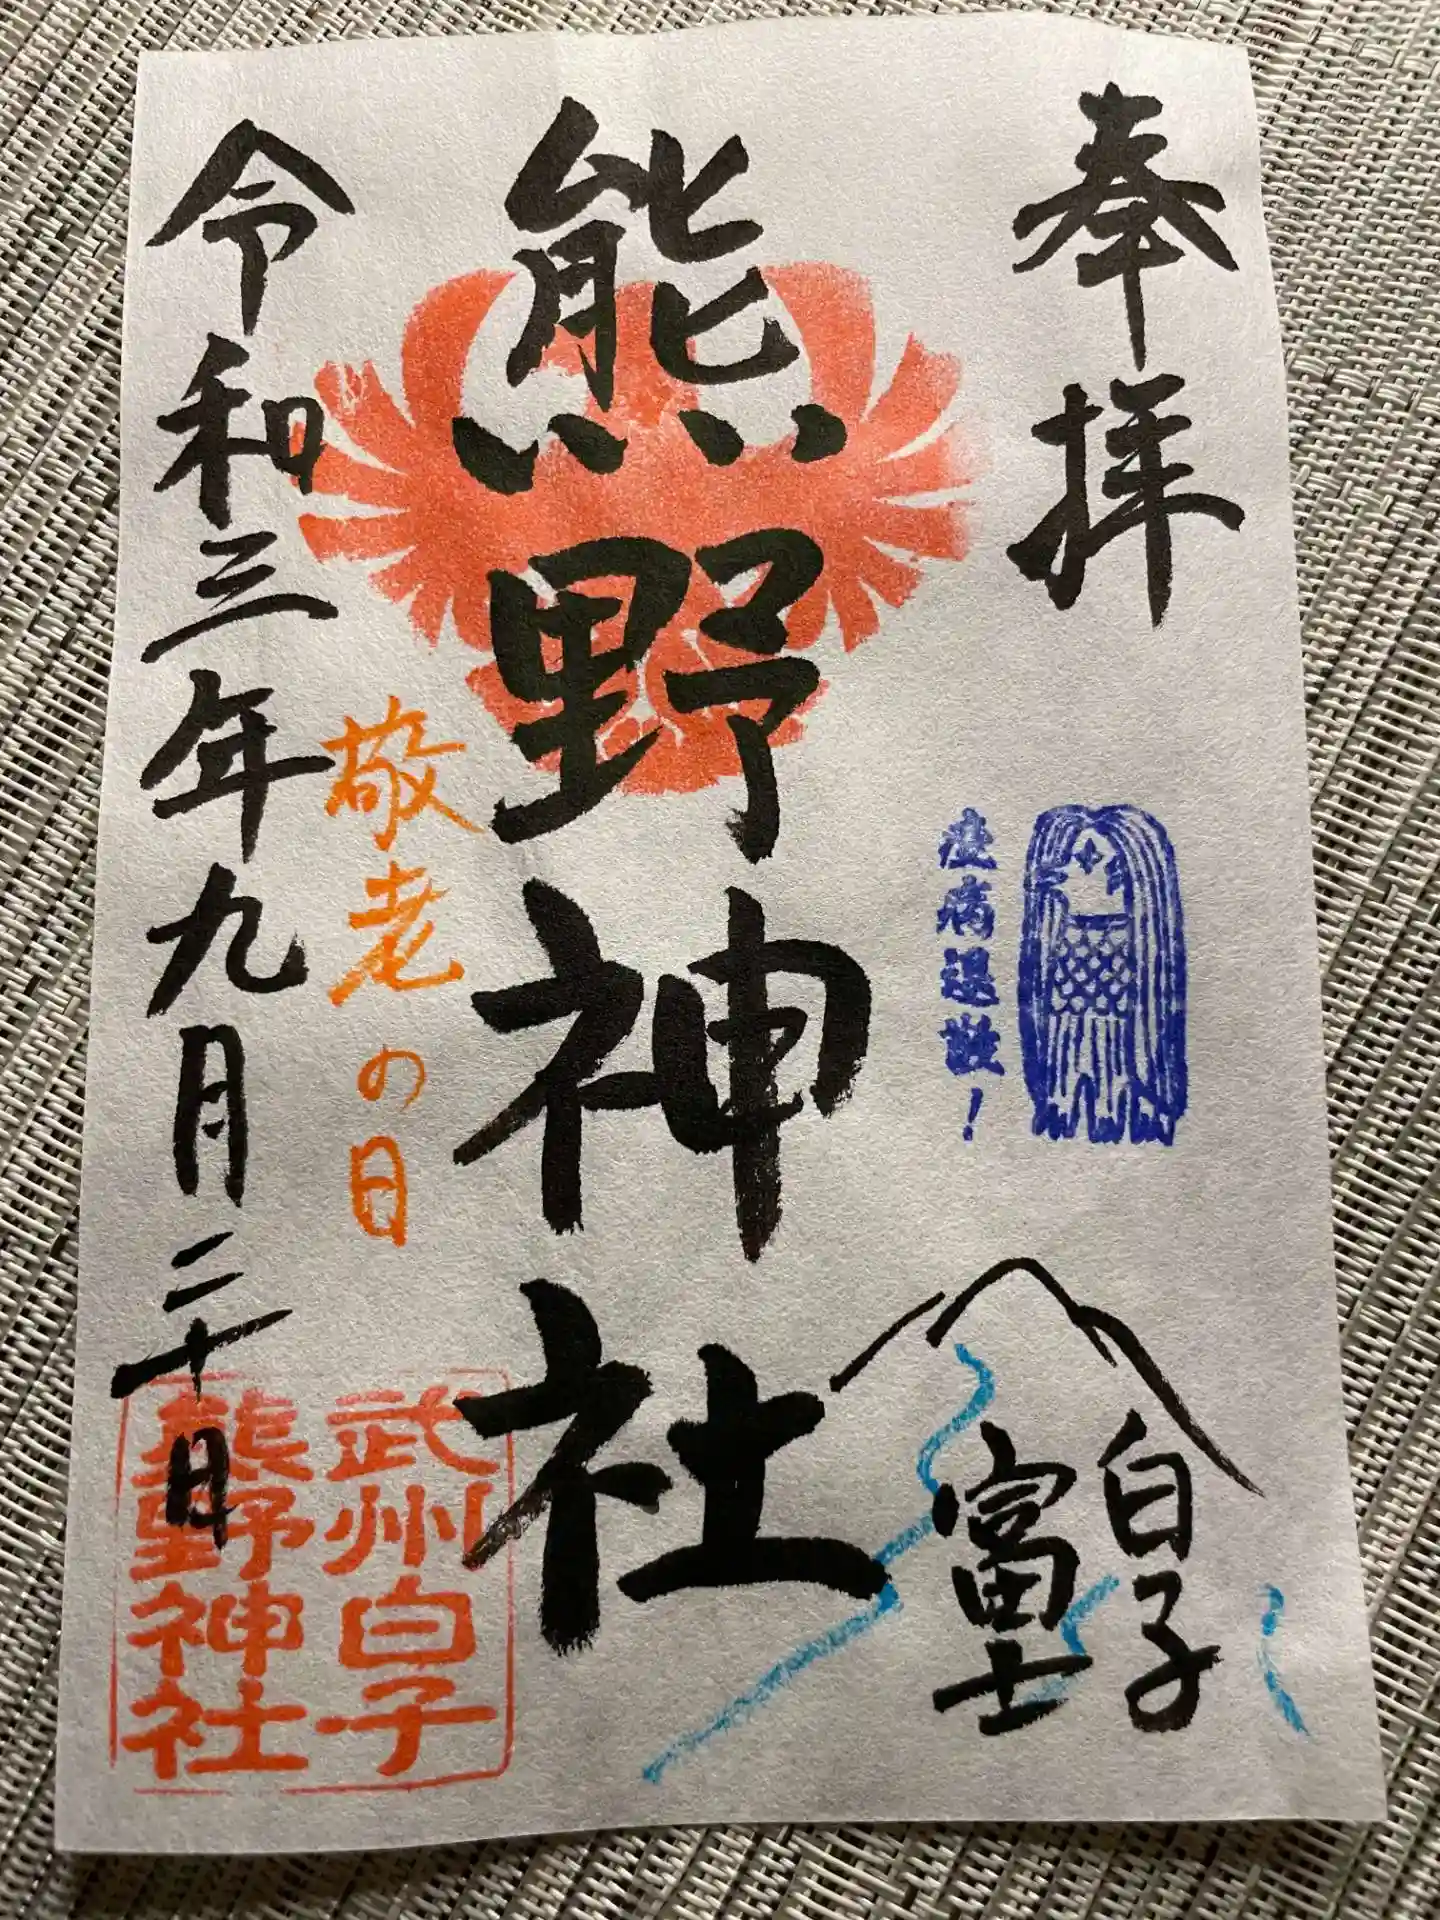 奉拝
疫病退散！
白子
富士
熊野神社
敬老の日
令和三年九月二十日
武州白子
熊野神社